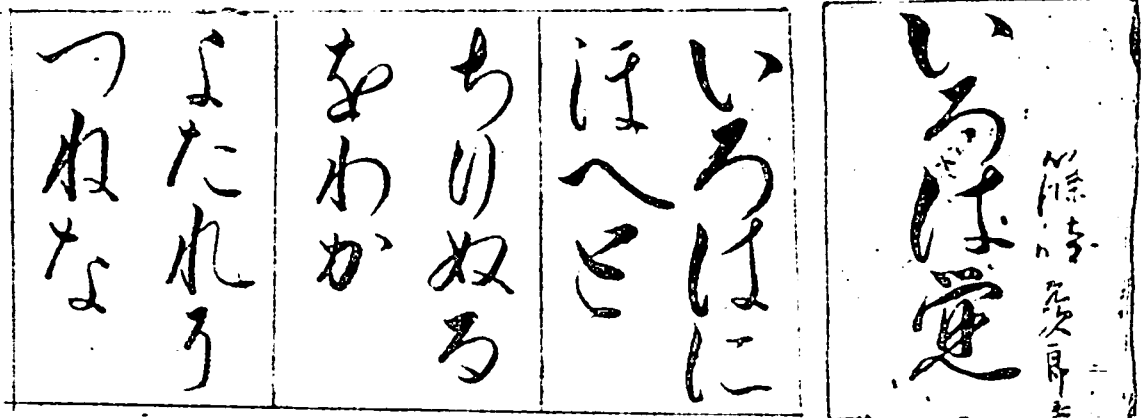 いろは
いろはに
ほへと
ちりぬる
をわか
よたれそ
つねな